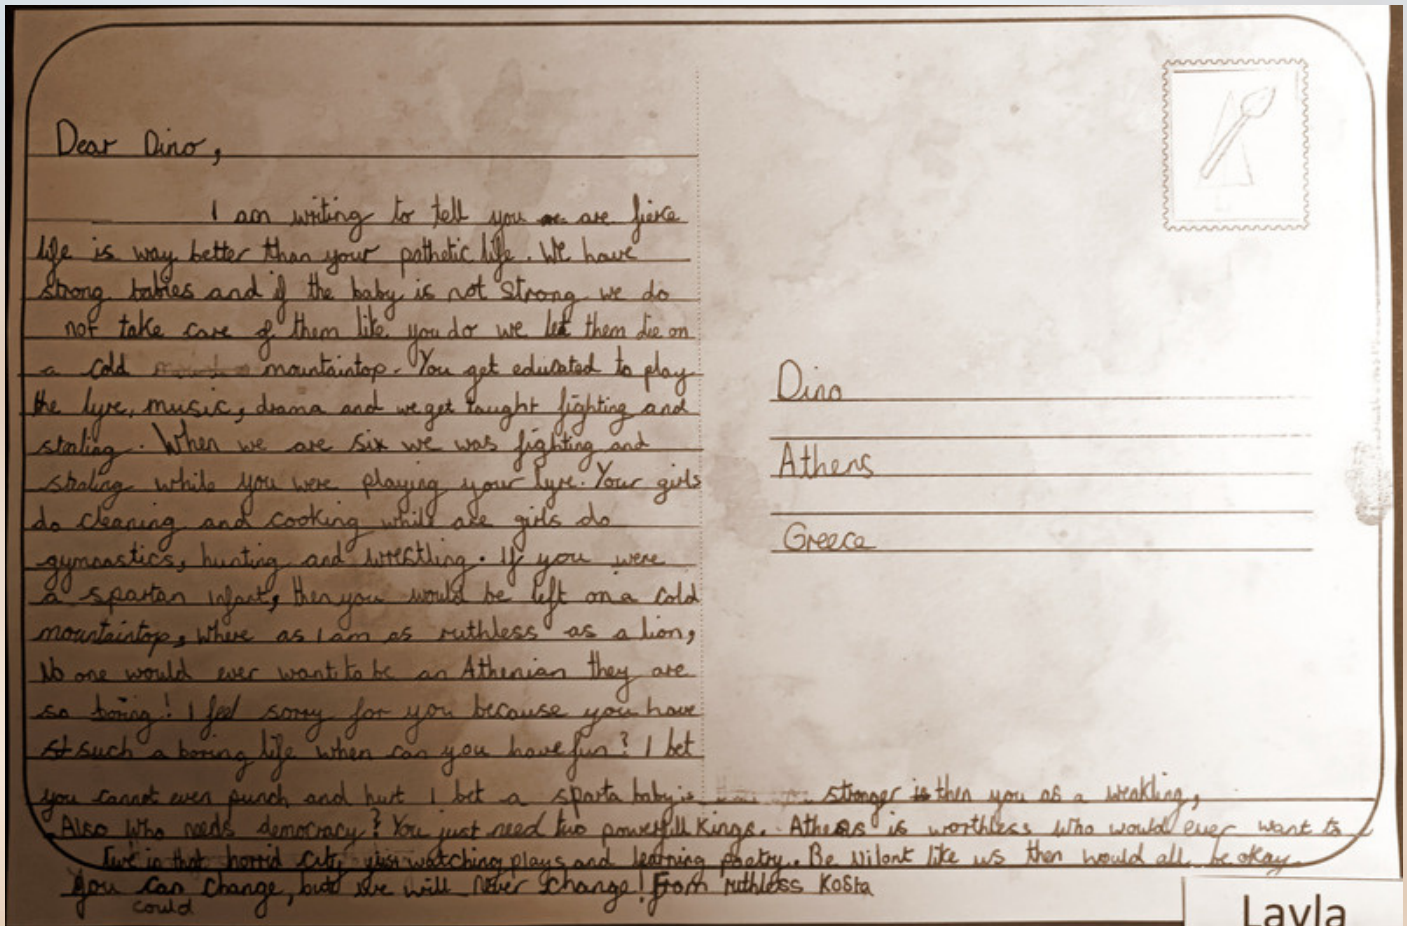 Dear Dino,
I am writing to tell you are fierce
life is way better than your pathetic life. We have
strong babies and if the baby is not strong we do
not take care of them like you do we let them die on
a cold mountaintop. You get educated to play
the lyre, music, drama and we get taught fighting and
stealing. When we are six we was fighting and
stealing while you were playing your lyre. Your girls
do cleaning and cooking while are girls do
gymnastics, hunting and wrestling. If you were
a spartan infant, then you would be left on a cold
mountaintop, where as I am as ruthless as a lion,
No one would ever want to be an Athenian they are
so boring! I feel sorry for you because you have
such a boring life when can you have fun? I bet
you cannot even punch and hurt I bet a sparta baby is stronger then you as a weakling,
Also Who needs democracy? You just need two powerfull Kings. Athens is worthless Who would ever want to
live in that horrid city, just watching plays and learning poetry. Be Vilont like us then would all be okay
You can change, but we will never change! From ruthless Kosta
could
Dino
Athens
Greece
Layla